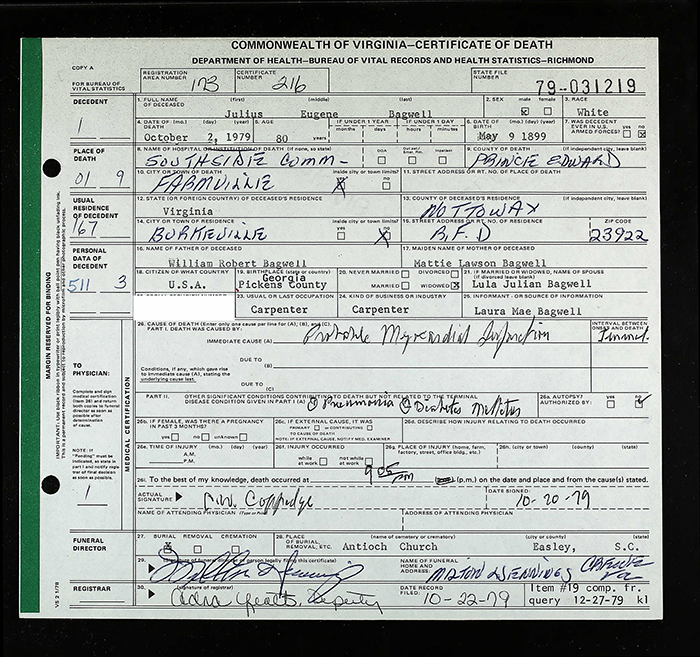 COMMONWEALTH OF VIRGINIA—CERTIFICATE OF DEATH
DEPARTMENT OF HEALTH—BUREAU OF VITAL RECORDS AND HEALTH STATISTICS—RICHMOND
COPY A
FOR BUREAU OF VITAL STATISTICS
REGISTRATION AREA NUMBER 173 CERTIFICATE NUMBER 216 STATE FILE NUMBER 79-031219
DECEDENT 1
1. FULL NAME OF DECEASED (first) (middle) (last) Julius Eugene Bagwell 2. SEX male female 3. RACE White
4. DATE OF DEATH (mo.) (day) (year) October 2, 1979 5. AGE 80 years IF UNDER 1 YEAR months days IF UNDER 1 DAY hours minutes 6. DATE OF BIRTH (mo.) (day) (year) May 9 1899 7. WAS DECEDENT EVER IN U.S. ARMED FORCES? yes no X
PLACE OF DEATH 01 9
8. NAME OF HOSPITAL OR INSTITUTION OF DEATH (if none, so state) SOUTHSIDE COMM- DOA Inpatient 9. COUNTY OF DEATH (if independent city, leave blank) PRINCE EDWARD
10. CITY OR TOWN OF DEATH FARMVILLE inside city or town limits? yes X no 11. STREET ADDRESS OR RT. NO. OF PLACE OF DEATH
USUAL RESIDENCE OF DECEDENT 167
12. STATE (OR FOREIGN COUNTRY) OF DECEASED'S RESIDENCE Virginia 13. COUNTY OF DECEASED'S RESIDENCE (if independent city, leave blank) NOTTOWAY
14. CITY OR TOWN OF RESIDENCE BURKEVILLE inside city or town limits? yes no X 15. STREET ADDRESS OR RT. NO. OF RESIDENCE R.F.D ZIP CODE 23922
PERSONAL DATA OF DECEDENT 511 3
16. NAME OF FATHER OF DECEASED William Robert Bagwell 17. MAIDEN NAME OF MOTHER OF DECEASED Mattie Lawson Bagwell
18. CITIZEN OF WHAT COUNTRY U.S.A. 19. BIRTHPLACE (state or country) Georgia Pickens County 20. NEVER MARRIED DIVORCED MARRIED WIDOWED X 21. IF MARRIED OR WIDOWED, NAME OF SPOUSE (if divorced leave blank) Lula Julian Bagwell
23. USUAL OR LAST OCCUPATION Carpenter 24. KIND OF BUSINESS OR INDUSTRY Carpenter 25. INFORMANT - OR SOURCE OF INFORMATION Laura Mae Bagwell
MARGIN RESERVED FOR BINDING
TO PHYSICIAN:
Complete and sign medical certification (Item 26) and return both copies to funeral director as soon as possible after determination of cause.
NOTE: If "Pending" must be indicated, so state in part I and notify registrar of final decision as soon as possible.
1
MEDICAL CERTIFICATION
26. CAUSE OF DEATH (Enter only one cause per line for (A), (B), and (C).) INTERVAL BETWEEN ONSET AND DEATH
PART I. DEATH WAS CAUSED BY:
IMMEDIATE CAUSE (A) Probable Myocardial Infarction
Conditions, if any, which gave rise to immediate cause (A), stating the underlying cause last.
DUE TO (B)
DUE TO (C)
PART II. OTHER SIGNIFICANT CONDITIONS CONTRIBUTING TO DEATH BUT NOT RELATED TO THE TERMINAL DISEASE CONDITION GIVEN IN PART I (A) ① Pneumonia ② Diabetes Mellitus 26a. AUTOPSY? AUTHORIZED BY: yes no
26b. IF FEMALE, WAS THERE A PREGNANCY IN PAST 3 MONTHS? yes no unknown 26c. IF EXTERNAL CAUSE, IT WAS PRIMARY or CONTRIBUTING TO CAUSE OF DEATH NOTE: IF EXTERNAL CAUSE, NOTIFY MED. EXAMINER 26d. DESCRIBE HOW INJURY RELATING TO DEATH OCCURRED
26e. TIME OF INJURY (mo.) (day) (year) A.M. P.M. 26f. INJURY OCCURRED while at work not while at work 26g. PLACE OF INJURY (home, farm, factory, street, office bldg., etc.) 26h. (city or town) (county) (state)
26i. To the best of my knowledge, death occurred at 9 05 pm (p.m.) on the date and place and from the cause(s) stated.
ACTUAL SIGNATURE C.W. Coppedge DATE SIGNED: 10-20-79
NAME OF ATTENDING PHYSICIAN (Type or Print) ADDRESS OF ATTENDING PHYSICIAN
FUNERAL DIRECTOR
27. BURIAL X REMOVAL CREMATION 28. PLACE OF BURIAL, REMOVAL, ETC. (name of cemetery or crematory) (city or county) (state) Antioch Church Easley, S.C.
29. (signature of funeral director or person legally filing this certificate) NAME OF FUNERAL HOME AND ADDRESS: MILTON JENNINGS CREWE VA
REGISTRAR
30. (signature of registrar) Deputy DATE RECORD FILED: 10-22-79 Item #19 comp. fr. query 12-27-79 kl
VS 2 1/78